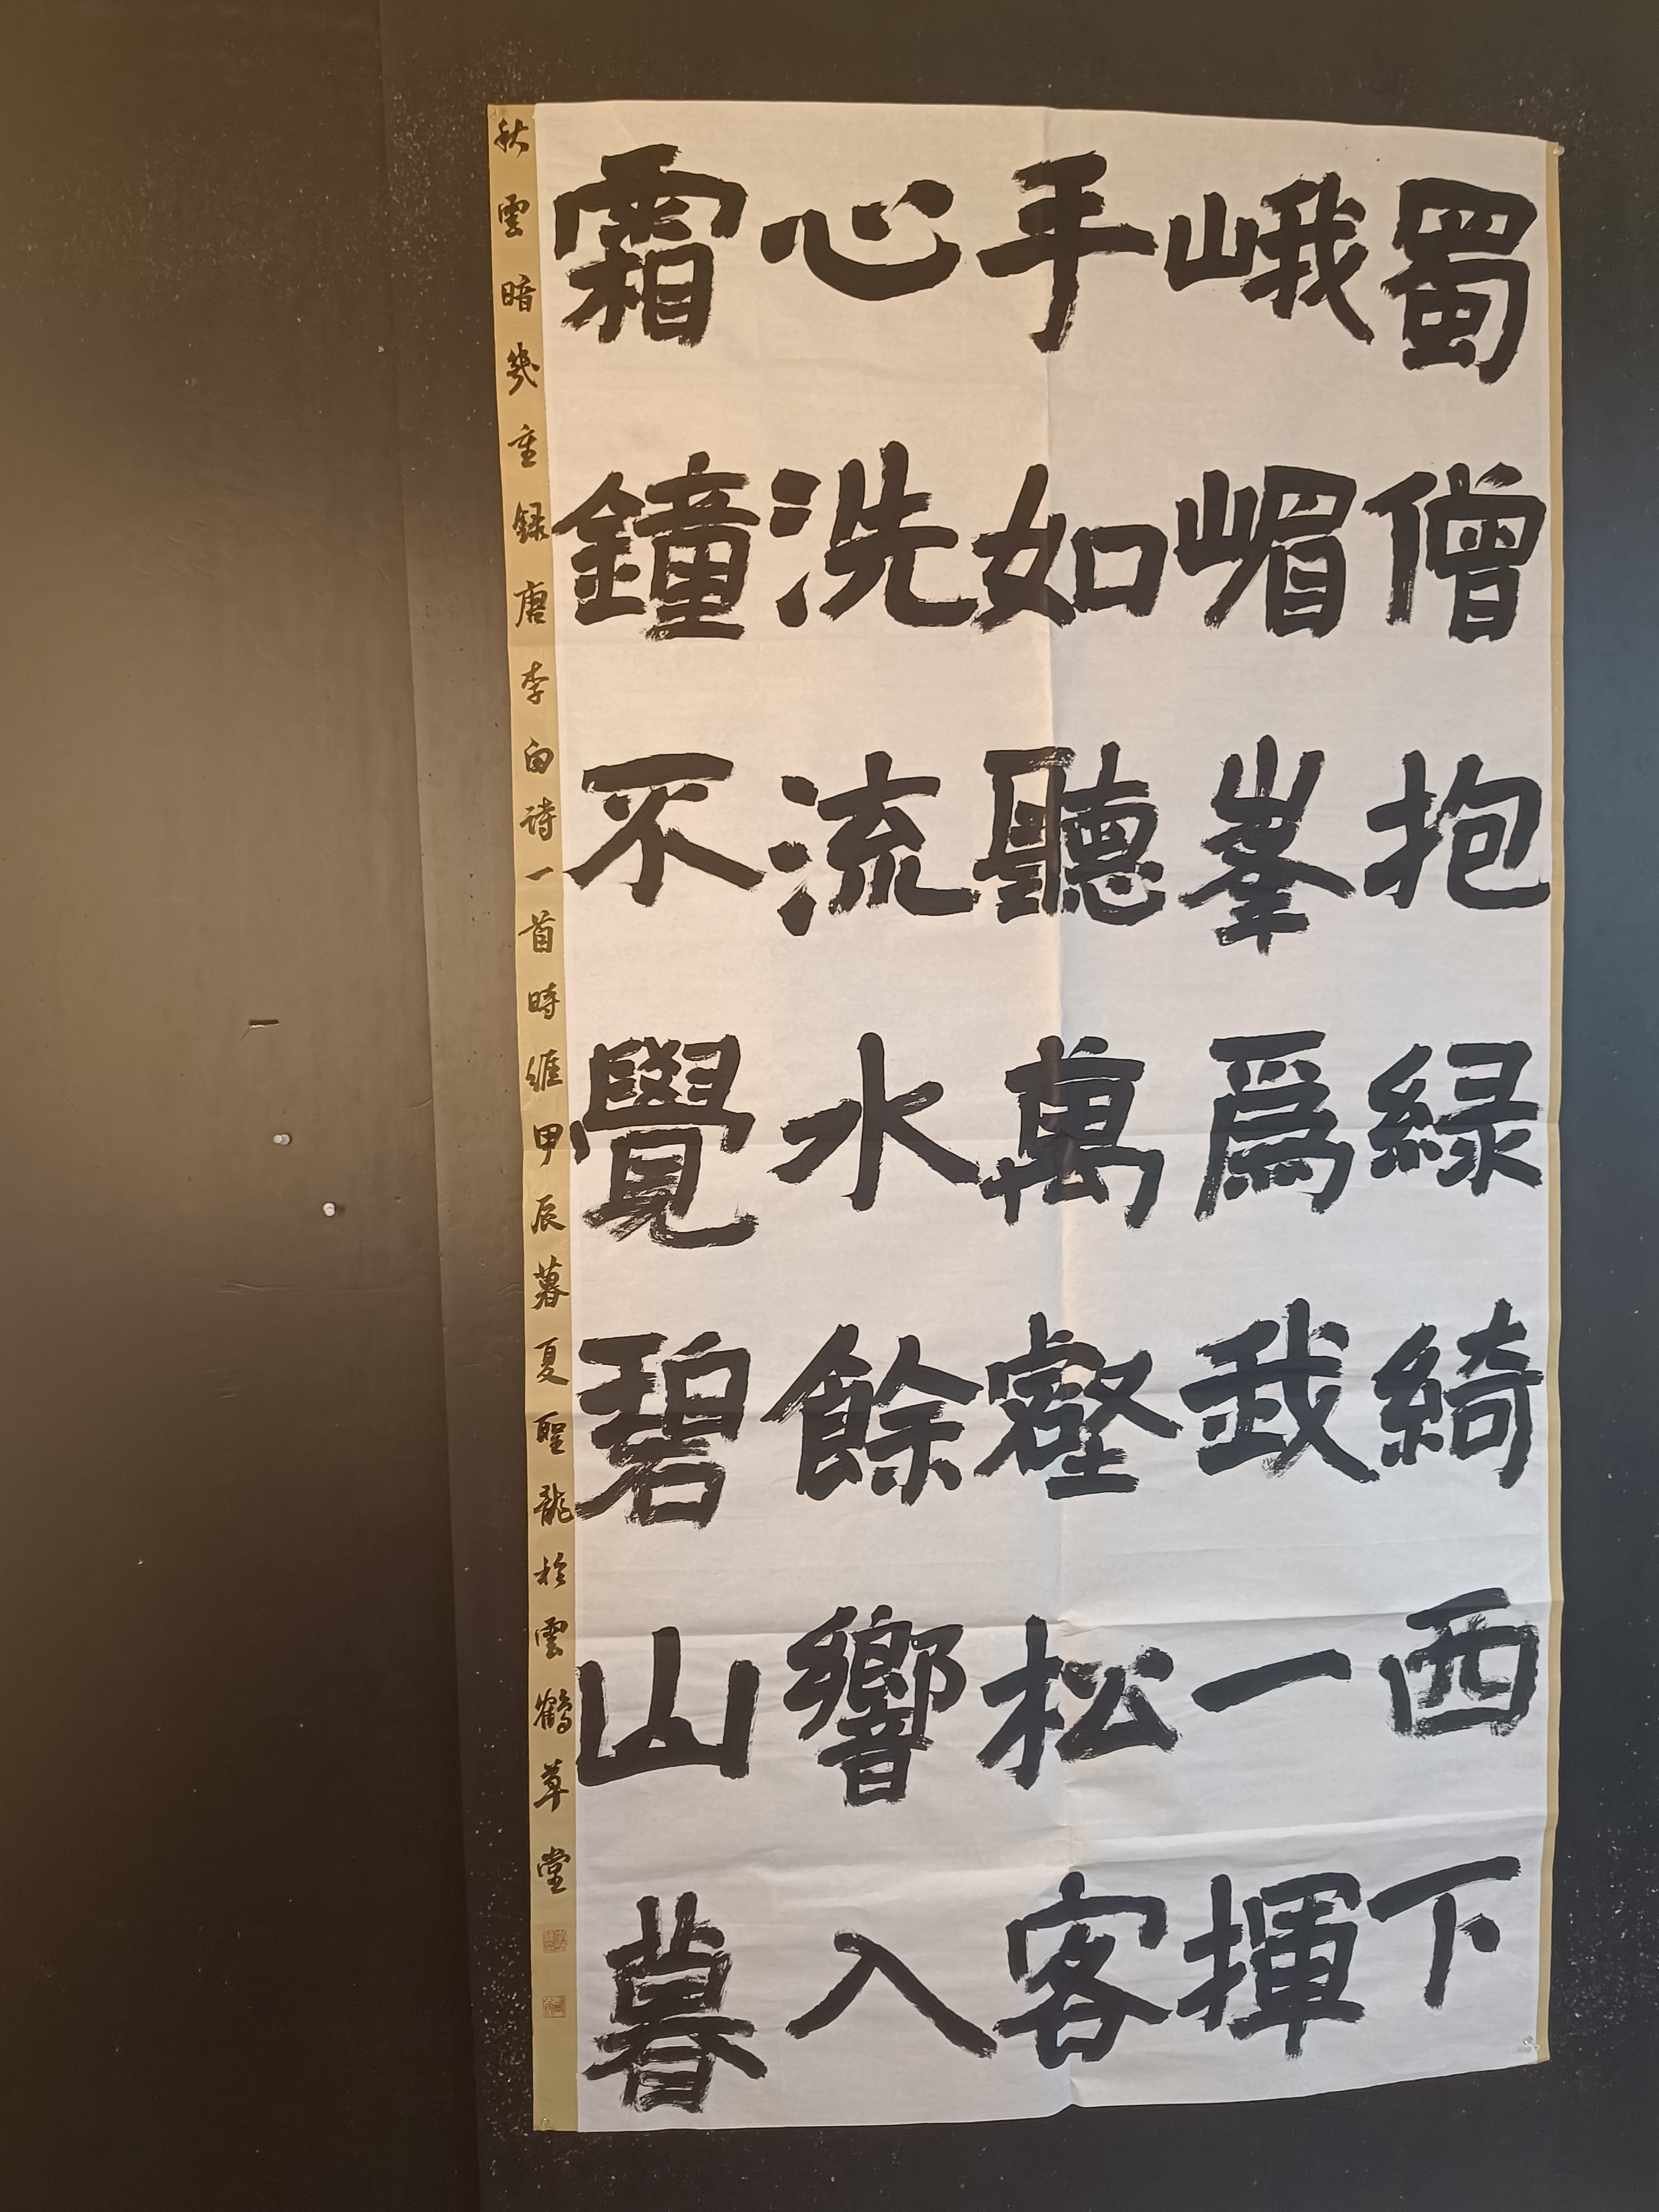 蜀僧抱緑綺西下
峨嵋峯爲我一揮
手如聽萬壑松客
心洗流水餘響入
霜鐘不覺碧山暮
秋雲暗幾重録唐李白诗一首時維甲辰暮夏聖龍於雲鶴草堂